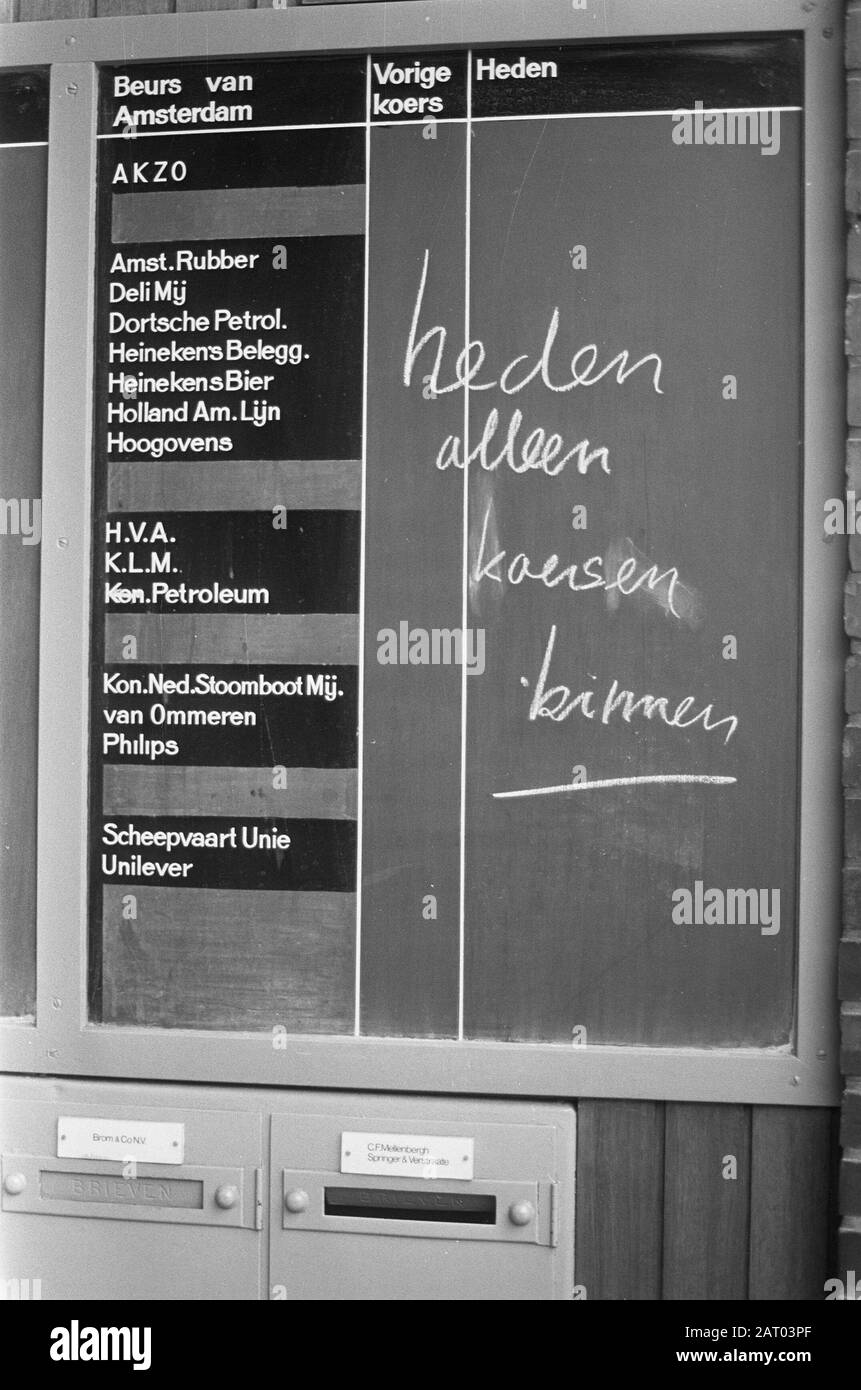 Beurs van
Amsterdam
Vorige
koers
Heden
AKZO
Amst.Rubber
Deli Mij
Dortsche Petrol.
Heineken's Belegg.
Heinekens Bier
Holland Am. Lijn
Hoogovens
H.V.A.
K.L.M.
Kon.Petroleum
Kon.Ned.Stoomboot Mij.
van Ommeren
Philips
Scheepvaart Unie
Unilever
heden
alleen
koersen
binnen
Brom & Co N.V.
BRIEVEN
C.F. Mellenbergh
Springer &
BRIEVEN
alamy
a
alamy
Image ID: 2AT03PF
www.alamy.com